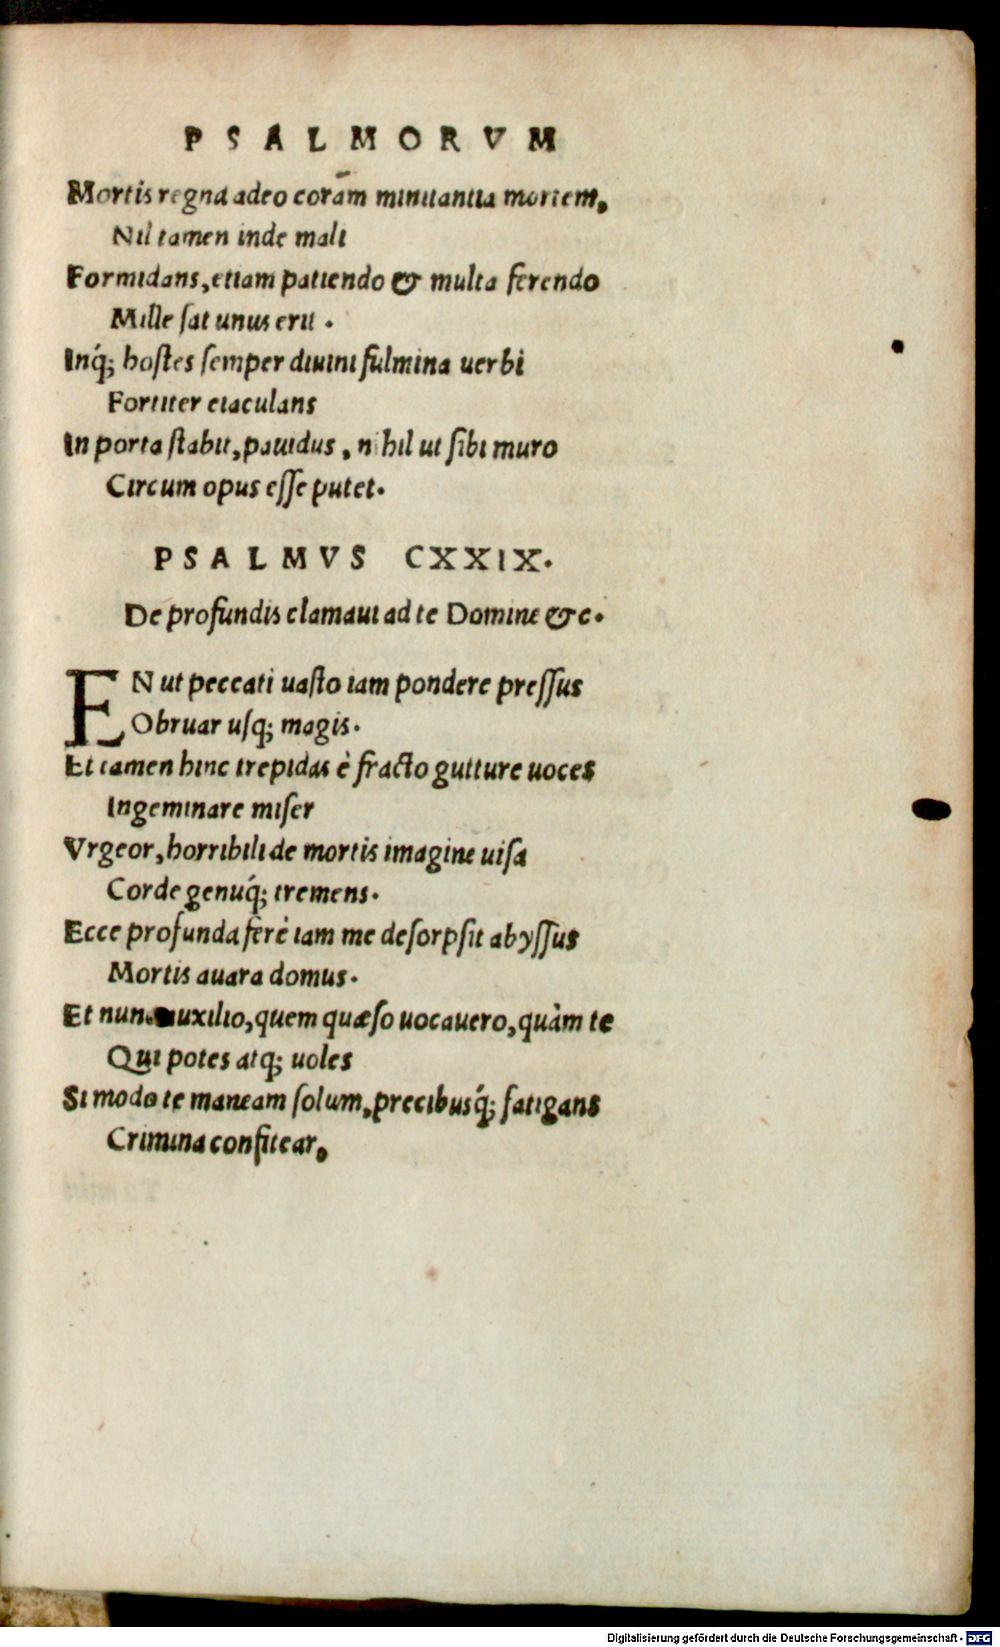 PSALMORVM
Mortis regna adeo coram minitantia mortem,
Nil tamen inde mali
Formidans, etiam patiendo & multa ferendo
Mille sat unus erit.
Inq́; hostes semper diuini fulmina uerbi
Fortiter eiaculans
In porta stabit, pauidus, nihil ut sibi muro
Circum opus esse putet.
PSALMVS CXXIX.
De profundis clamaui ad te Domine &c.
EN ut peccati uasto iam pondere pressus
Obruar usq; magis.
Et tamen hinc trepidas è fracto gutture uoces
Ingeminare miser
Vrgeor, horribili de mortis imagine uisa
Corde genuq́; tremens.
Ecce profunda ferè iam me desorpsit abyssus
Mortis auara domus.
Et nunc auxilio, quem quæso uocauero, quàm te
Qui potes atq; uoles
Si modo te maneam solum, precibusq́; fatigans
Crimina confitear,
Digitalisierung gefördert durch die Deutsche Forschungsgemeinschaft - DFG